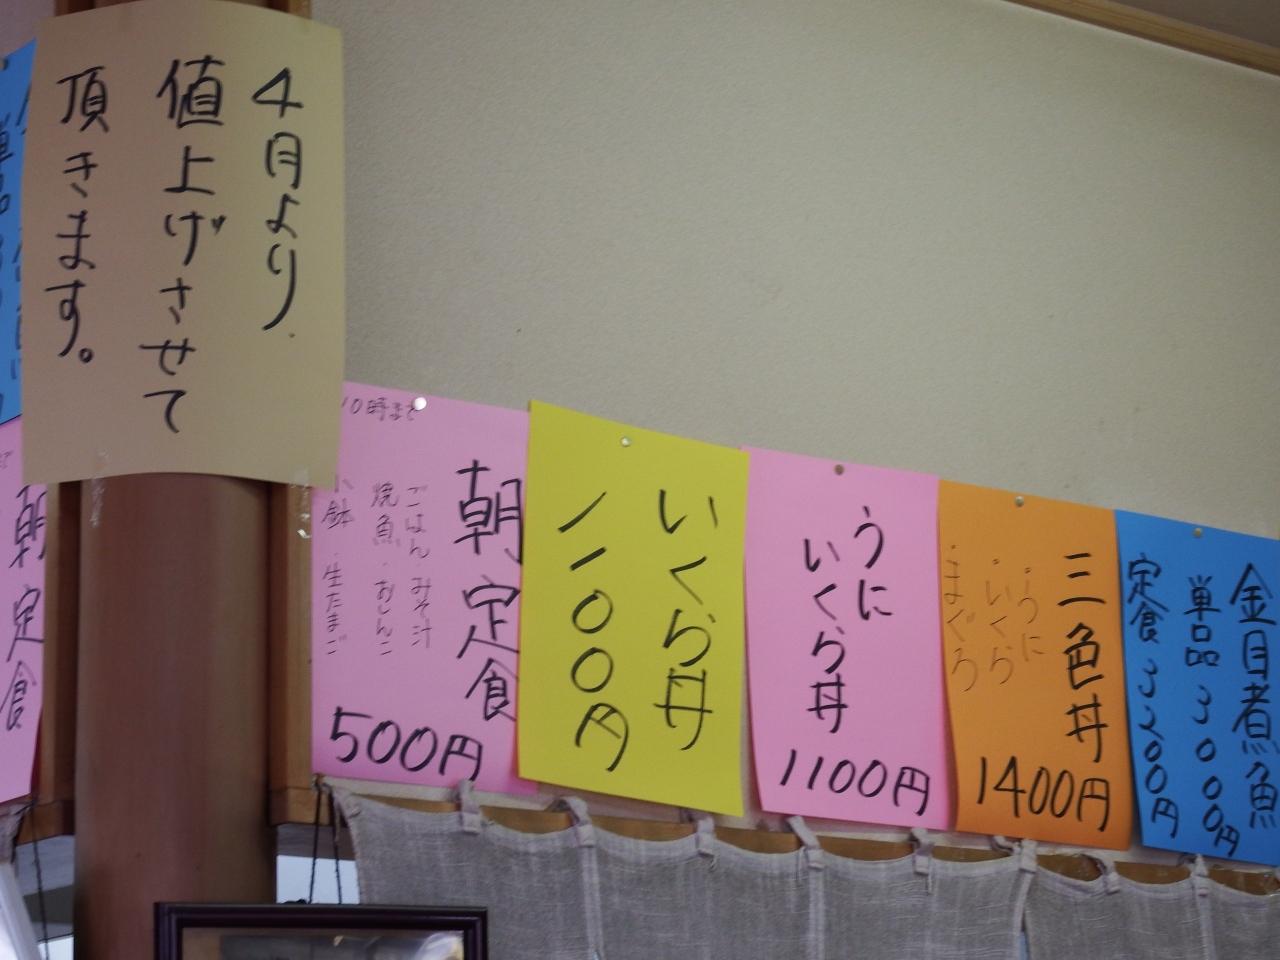 4月より
値上げさせて
頂きます。
10時まで
朝定食
ごはん・みそ汁
焼魚・おしんこ
小鉢・生たまご
500円
いくら丼
1100円
うに
いくら丼
1100円
三色丼
・うに
・いくら
・まぐろ
1400円
金目煮魚
単品3000円
定食3200円
朝定食